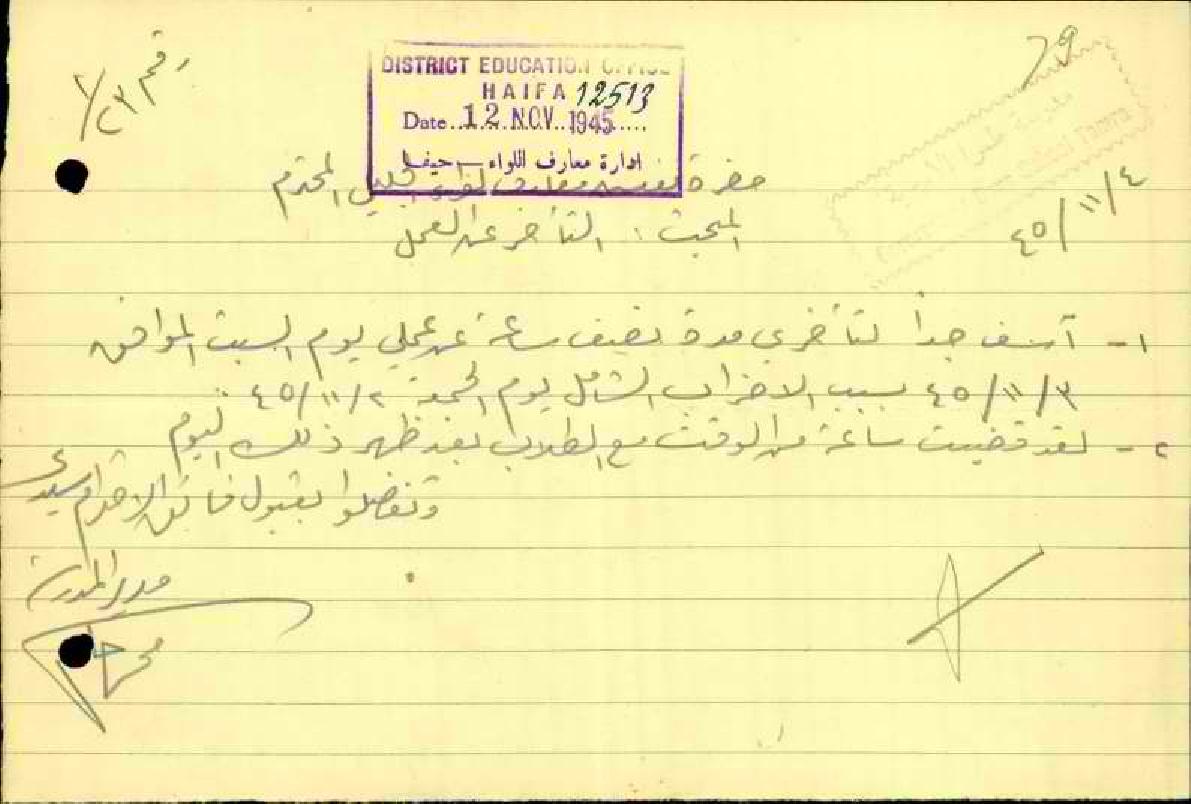 رقم ٢٣/٢
79
DISTRICT EDUCATION OFFICE
HAIFA 12513
Date..12 NOV 1945....
ادارة معارف اللواء – حيفا
٤/١١/٤٥
حضرة مفتش معارف لواء الجليل المحترم
المبحث : التأخر عن العمل
١- آسف جداً لتأخري مدة نصف ساعة عن عملي يوم السبت الموافق
٣/١١/٤٥ بسبب الاضراب الشامل يوم الجمعة ٢/١١/٤٥
٢- لقد قضيت ساعة من الوقت مع الطلاب بعد ظهر ذلك اليوم
وتفضلوا بقبول فائق الاحترام سيدي
مدير المدرسة